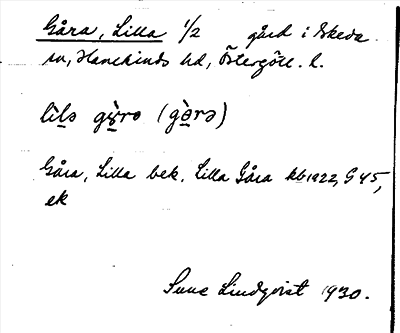 Gåra, Lilla 1/2 gård i Skeda
sn, Hanekinds hd, Östergötl. l.
Gåra, Lilla bek. Lilla Gåra kb 1922, G 45,
ek
Sune Lindqvist 1930.